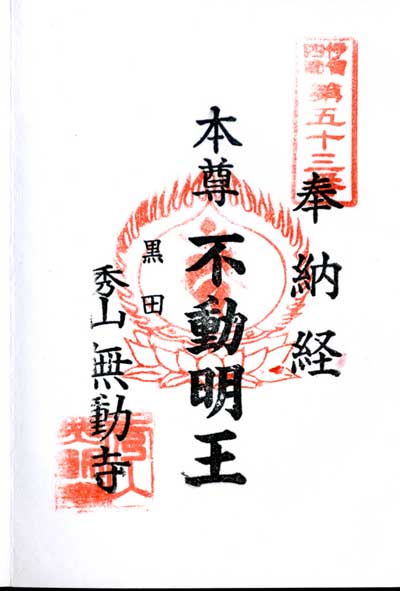 第五十三番
奉納経
本尊 不動明王
黒田
秀山 無動寺